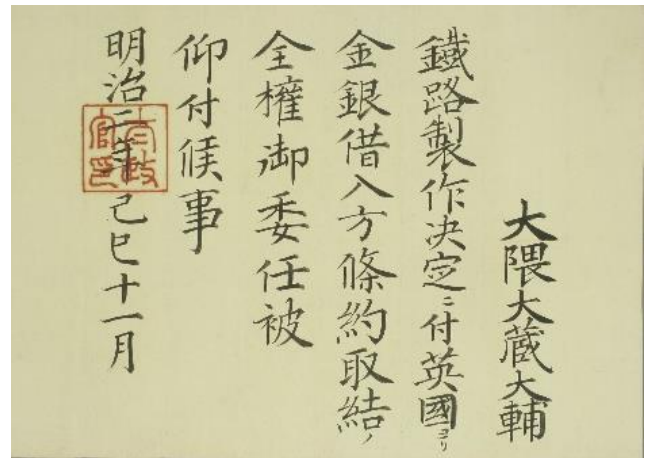 大隈大蔵大輔
鐵路製作決定ニ付英國ヨリ
金銀借入方條約取結ノ
全權御委任被
仰付候事
明治二年己巳十一月
太政官印